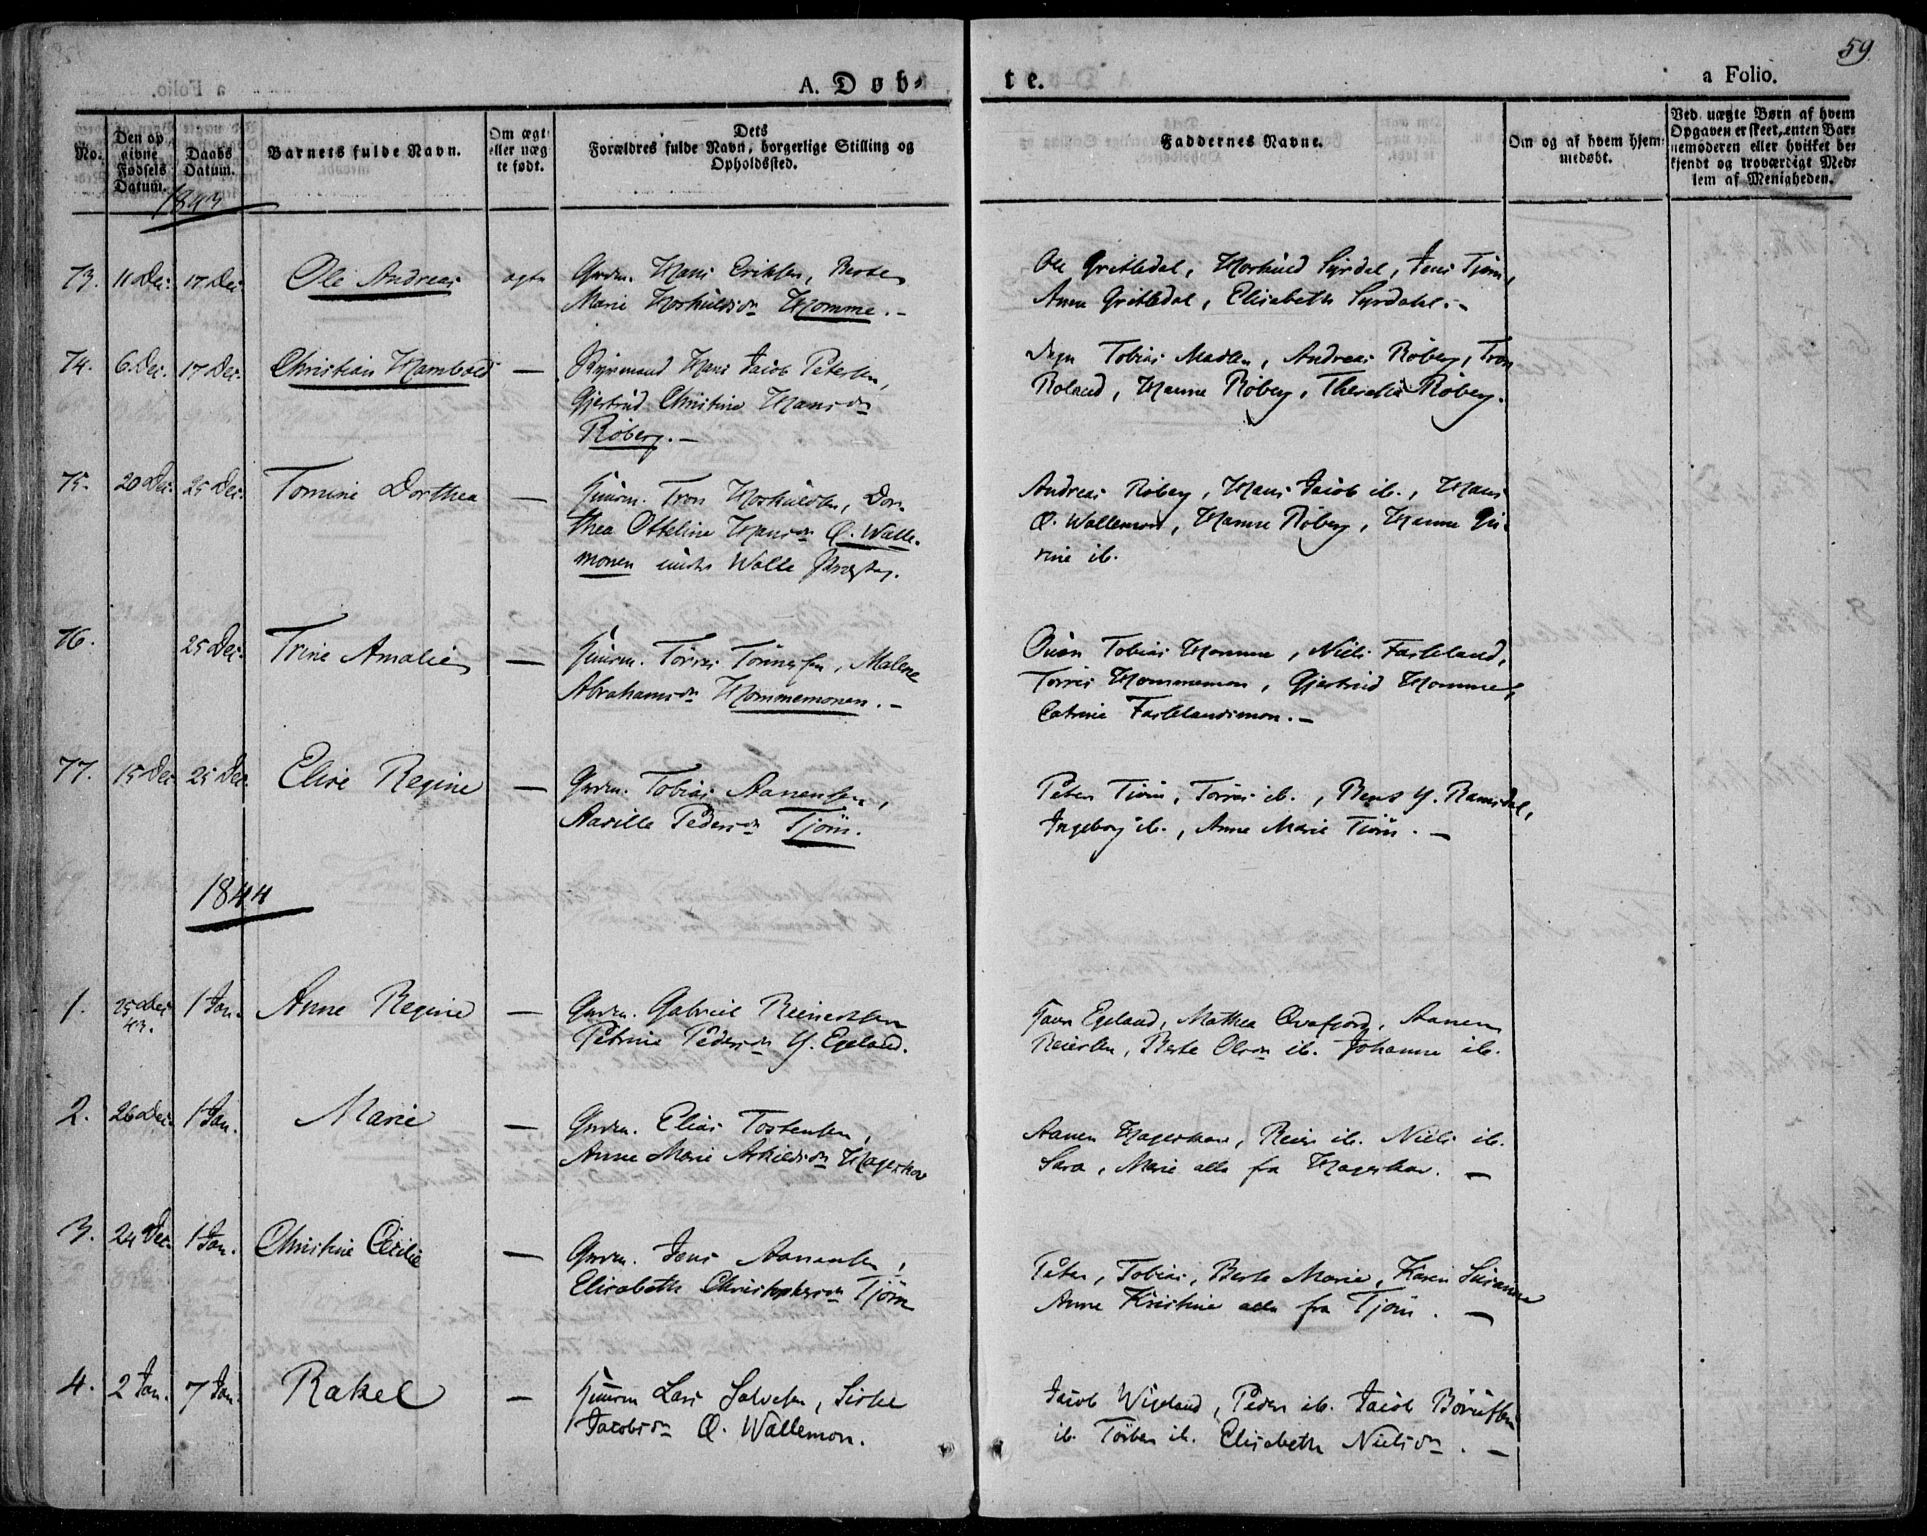 59
A. Døb-
te.
a Folio.
No.
Den op
givne
Fødsels
Datum.
Daabs
Datum.
Barnets fulde Navn.
Om ægt
eller uæg
te født.
Dets
Forældres fulde Navn, borgerlige Stilling og
Opholdssted.
Faddernes Navne.
Om og af hvem hjem-
medøbt.
Ved uægte Børn af hvem
Opgaven er skeet, enten Bar-
nemoderen eller hvilket be-
kjendt og troværdigt Med-
lem af Menigheden.
1843
73. 11 Dec. 17 Dec. Ole Andreas ægte Grdm. Hans Eriksen, Berte
Marie Horskuldsdr Homme. -
Ole Grettedal, Horskuld Syrdal, Jens Tjøm,
Anne Grettedal, Elisabeth Syrdahl. -
74. 6 Dec. 17 Dec. Christian Hambold — Hans Jacob Petersen,
Gjertrud Christine Hansdr
Røberg. -
Tobias Madsen, Andreas Røberg, Tron
Roland, Hanne Røberg, Røberg.
75. 20 Dec. 25 Dec. Tomine Dorthea — Huusm. Tron Horskuldsen, Dor-
thea Otteline Hansdr Ø. Walle-
monen under Walle
Andreas Røberg, Hans Jacob ib., Hans
Ø. Wallemon, Hanne Røberg, Hanne
rine ib.
76. 25 Dec. Trine Amalie — Huusm. Torres Tønnesen, Malene
Abrahamsdr Hommemonen. -
Tobias Homme, Niels Fasseland,
Torres Hommemon, Gjertrud Homme,
Catrine Fasselandsmon. -
77. 15 Dec. 25 Dec. Elise Regine — Grdm. Tobias Aanensen,
Aasille Pedersdr Tjøm.
Peter Tjøm, Torres ib., Bent Y. Ramsdal,
Ingeborg ib., Anne Marie Tjøm. -
1844
1. 25 Dec. 43. 1 Jan. Anne Regine — Grdm. Gabriel Reinertsen
Petrine Pedersdr Y. Egeland.
Egeland, Mathea Qvafjord, Aanen
Reiersen, Berte Olsdr ib. Johanne ib.
2. 26 Dec. 1 Jan. Marie — Grdm. Elias Tostensen,
Anne Marie Askildsdr Hageskar
Aanen Hageskar, Reier ib. Niels ib.
Sara, Marie alle fra Hageskar. —
3. 24 Dec. 1 Jan. Christine Cecilie — Grdm. Jens Aanensen,
Elisabeth Christophersdr Tjøm
Peter, Tobias, Berte Marie, Karen Susanne
Anne Kristine alle fra Tjøm. —
4. 2 Jan. 7 Jan. Rakel — Huusm Lars Salvesen, Siske
Jacobsdr Ø. Wallemon.
Jacob Wigeland, Peder ib. Jacob Børufsen
ib. Torber ib. Elisabeth Nielsdr. —